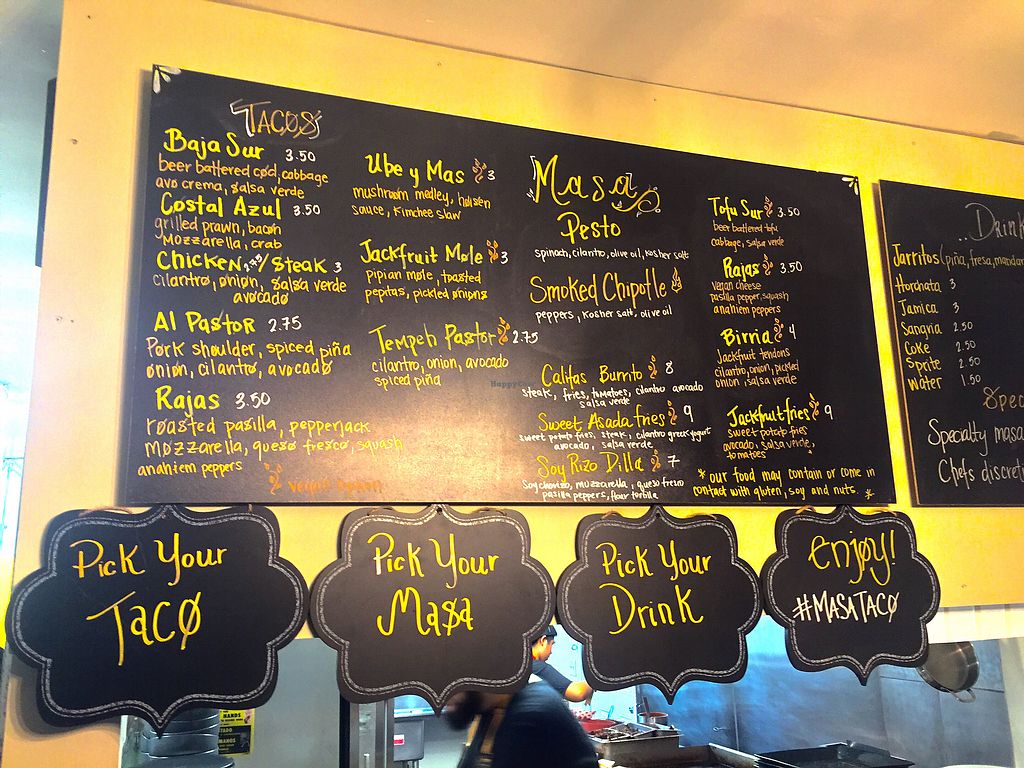 TACOS
Baja Sur 3.50
beer battered cod, cabbage
avo crema, salsa verde
Costal Azul 3.50
grilled prawn, bacon
mozzarella, crab
Chicken 2.75/Steak 3
cilantro, onion, salsa verde
avocado
Al Pastor 2.75
Pork shoulder, spiced piña
onion, cilantro, avocado
Rajas 3.50
roasted pasilla, pepperjack
mozzarella, queso fresco, squash
anahiem peppers
Ube y Mas 3
mushroom medley, hoisen
sauce, Kimchee slaw
Jackfruit Mole 3
pipian mole, toasted
pepitas, pickled onions
Tempeh Pastor 2.75
cilantro, onion, avocado
spiced piña
Vegan Option
Masa
Pesto
spinach, cilantro, olive oil, kosher salt
Smoked Chipotle
peppers, kosher salt, olive oil
Califas Burrito 8
steak, fries, tomatoes, cilantro avocado
salsa verde
Sweet Asada fries 9
sweet potato fries, steak, cilantro greek yogurt
avocado, salsa verde
Soy Rizo Dilla 7
Soy chorizo, mozzarella, queso fresco
pasilla peppers, flour tortilla
Tofu Sur 3.50
beer battered tofu
cabbage, salsa verde
Rajas 3.50
vegan cheese
pasilla pepper, squash
anahiem peppers
Birria 4
Jackfruit tendons
cilantro, onion, pickled
onion, salsa verde
Jackfruit fries 9
sweet potato fries
avocado, salsa verde,
tomatoes
* our food may contain or come in
contact with gluten, soy and nuts. *
..Drink
Jarritos/piña, fresa, mandar
Horchata 3
Jamica 3
Sangria 2.50
Coke 2.50
Sprite 2.50
Water 1.50
Spec
Specialty masa
Chefs discret
Pick Your
Taco
Pick Your
Masa
Pick Your
Drink
enjoy!
#MASATACO
HANDS